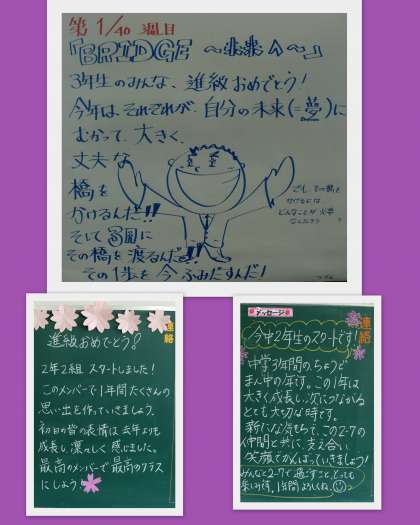 第1/40週目
「BRIDGE
3年生のみんな、進級おめでとう!
今年は、それぞれが、自分の未来(=夢)に
むかって、大きく、
丈夫な
橋を
かけるんだ!!
そして
その橋を渡るんだ!!
その1歩を今ふみだすんだ!
でも、その橋を
かけるには
どんなことが
連絡
進級おめでとう!
2年2組 スタートしました!
このメンバーで1年間たくさんの
思い出を作っていきましょう。
初日の皆の表情は去年よりも
成長し、凛々しく感じました。
最高のメンバーで最高のクラス
にしよう!
メッセージ
連絡
今中2年生のスタートです!
中学3年間のちょうど
まん中の年です。この1年は
大きく成長し、次につながる
とても大切な時です。
新たな気持ちで、この2-7の
仲間と共に、支え合い
笑顔でがんばっていきましょう!
みんなと2-7で過ごすこと、とっても
1年間よろしくね